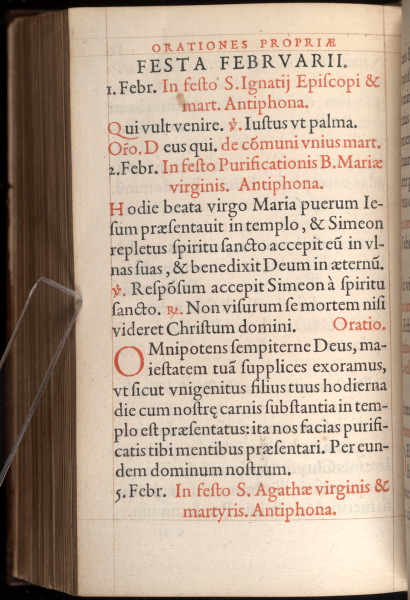 ORATIONES PROPRIÆ
FESTA FEBRVARII.
1. Febr. In festo S. Ignatij Episcopi &
mart. Antiphona.
Qui vult venire. ℣. Iustus vt palma.
Oro. Deus qui. de cõmuni vnius mart.
2. Febr. In festo Purificationis B. Mariæ
virginis. Antiphona.
Hodie beata virgo Maria puerum Ie-
sum præsentauit in templo, & Simeon
repletus spiritu sancto accepit eũ in vl-
nas suas, & benedixit Deum in æternũ.
℣. Respõsum accepit Simeon à spiritu
sancto. ℟. Non visurum se mortem nisi
videret Christum domini. Oratio.
OMnipotens sempiterne Deus, ma-
iestatem tuã supplices exoramus,
vt sicut vnigenitus filius tuus hodierna
die cum nostrę carnis substantia in tem-
plo est præsentatus: ita nos facias purifi-
catis tibi mentibus præsentari. Per eun-
dem dominum nostrum.
5. Febr. In festo S. Agathæ virginis &
martyris. Antiphona.